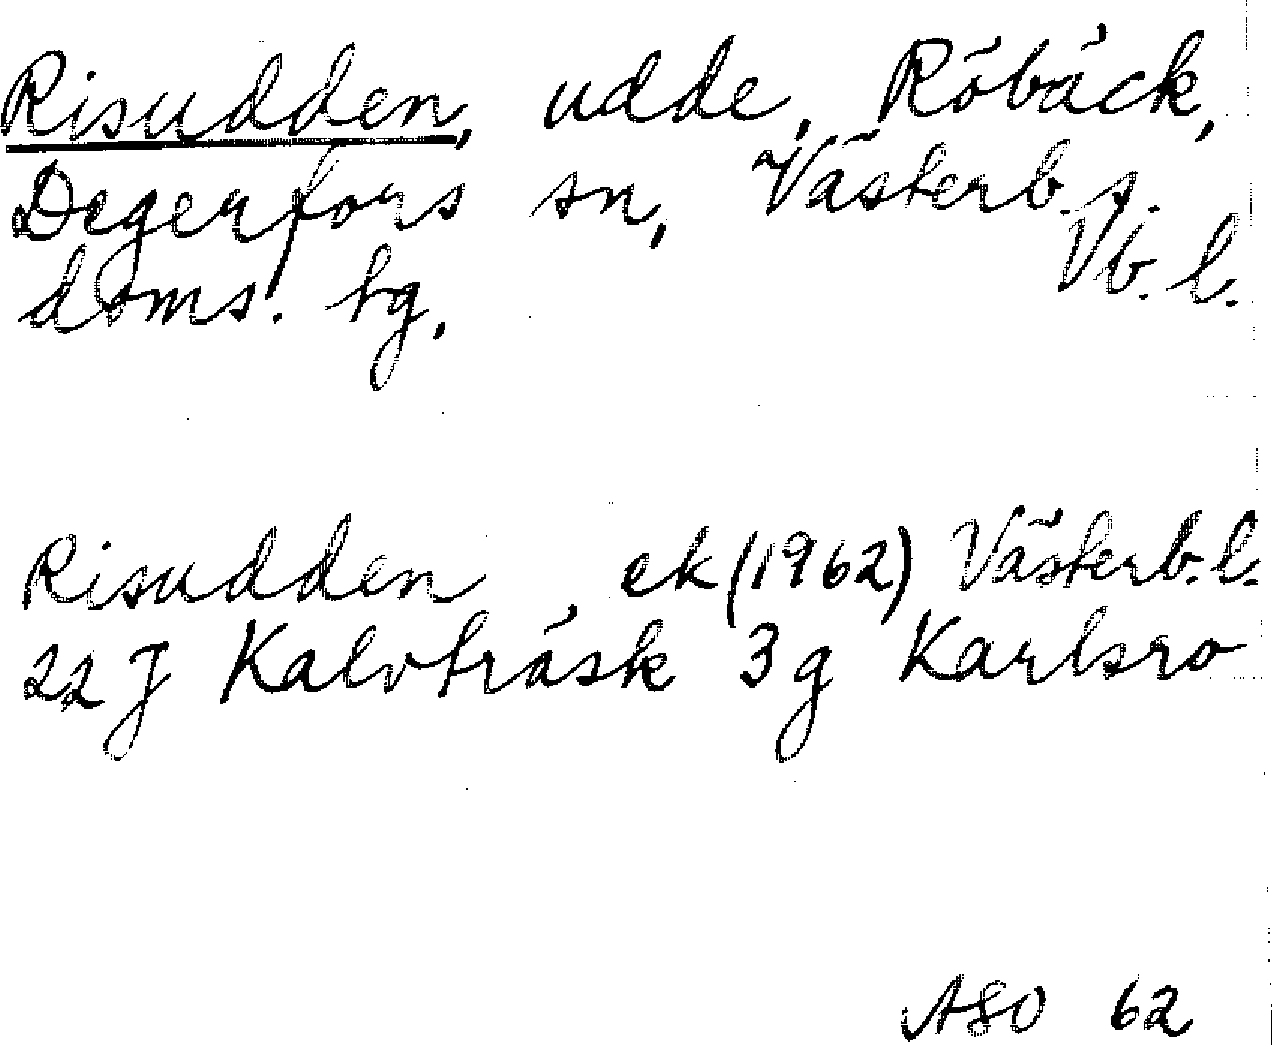 Risudden, udde, Röbäck,
Degerfors sn, Västerb. s.
doms. hg, Vb. l.
Risudden ek (1962) Västerb. l.
22 J Kalvträsk 3 g Karlsro
ASO 62